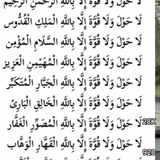 لَا حَوْلَ وَلَا قُوَّةَ إِلَّا بِاللَّهِ الرَّحْمَٰنِ الرَّحِيْمِ
لَا حَوْلَ وَلَا قُوَّةَ إِلَّا بِاللَّهِ الْمَلِكِ الْقُدُّوْسِ
لَا حَوْلَ وَلَا قُوَّةَ إِلَّا بِاللَّهِ السَّلَامِ الْمُؤْمِنِ
لَا حَوْلَ وَلَا قُوَّةَ إِلَّا بِاللَّهِ الْمُهَيْمِنِ الْعَزِيْزِ
لَا حَوْلَ وَلَا قُوَّةَ إِلَّا بِاللَّهِ الْجَبَّارِ الْمُتَكَبِّرِ
لَا حَوْلَ وَلَا قُوَّةَ إِلَّا بِاللَّهِ الْخَالِقِ الْبَارِئِ
لَا حَوْلَ وَلَا قُوَّةَ إِلَّا بِاللَّهِ الْمُصَوِّرِ الْغَفَّارِ
لَا حَوْلَ وَلَا قُوَّةَ إِلَّا بِاللَّهِ الْقَهَّارِ الْوَهَّابِ
28K
920